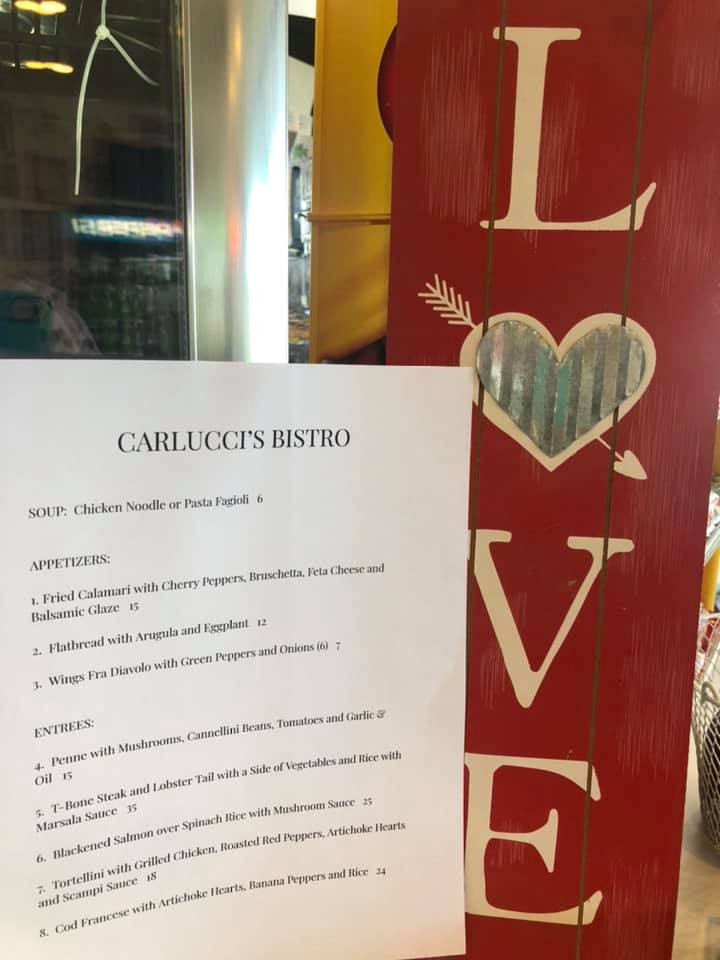 CARLUCCI'S BISTRO
SOUP: Chicken Noodle or Pasta Fagioli 6
APPETIZERS:
1. Fried Calamari with Cherry Peppers, Bruschetta, Feta Cheese and
Balsamic Glaze 15
2. Flatbread with Arugula and Eggplant 12
3. Wings Fra Diavolo with Green Peppers and Onions (6) 7
ENTREES:
4. Penne with Mushrooms, Cannellini Beans, Tomatoes and Garlic &
Oil 15
5. T-Bone Steak and Lobster Tail with a Side of Vegetables and Rice with
Marsala Sauce 35
6. Blackened Salmon over Spinach Rice with Mushroom Sauce 25
7. Tortellini with Grilled Chicken, Roasted Red Peppers, Artichoke Hearts
and Scampi Sauce 18
8. Cod Francese with Artichoke Hearts, Banana Peppers and Rice 24
L
V
E